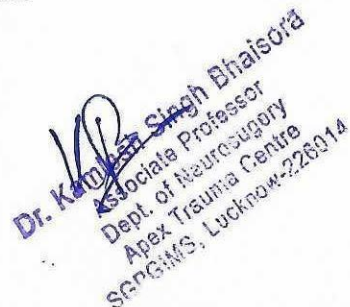 Dr. Kamlesh Singh Bhaisora
Associate Professor
Dept. of Neurosugory
Apex Trauma Centre
SGPGIMS, Lucknow-226014